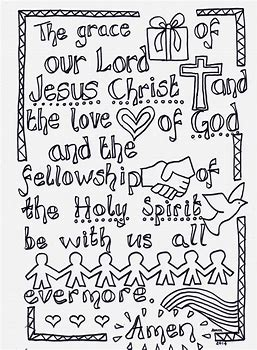 The grace of
our Lord
Jesus Christ and
the love of God
and the
fellowship of
the Holy Spirit
be with us all
evermore.
Amen
2014